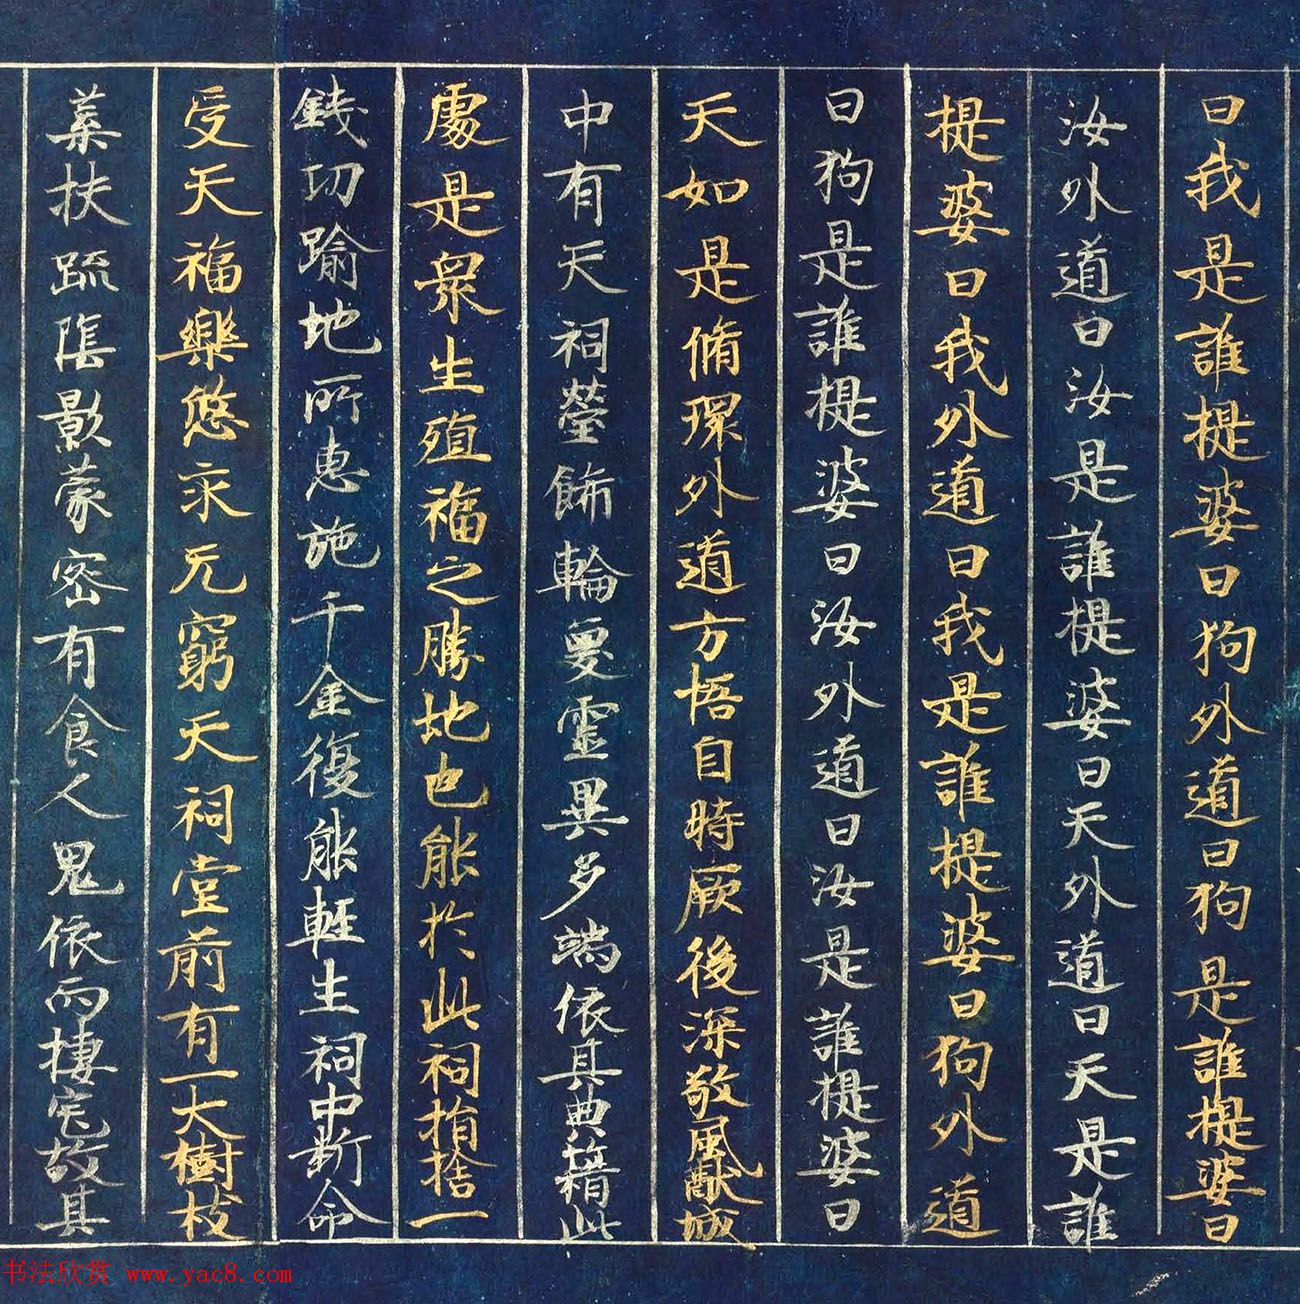 曰我是誰提婆曰狗外道曰狗是誰提婆曰
汝外道曰汝是誰提婆曰天外道曰天是誰
提婆曰我外道曰我是誰提婆曰狗外道
曰狗是誰提婆曰汝外道曰汝是誰提婆曰
天如是脩環外道方悟自時厥後深敬風猷城
中有天祠瑩飾輪奐靈異多端依其典籍此
處是衆生殖福之勝地也能於此祠捐捨一
錢功踰地所惠施千金復能輕生祠中斷命
受天福樂悠永无窮天祠堂前有一大樹枝
葉扶疏蔭影蒙密有食人鬼依而棲宅故其
书法欣赏 www.yac8.com